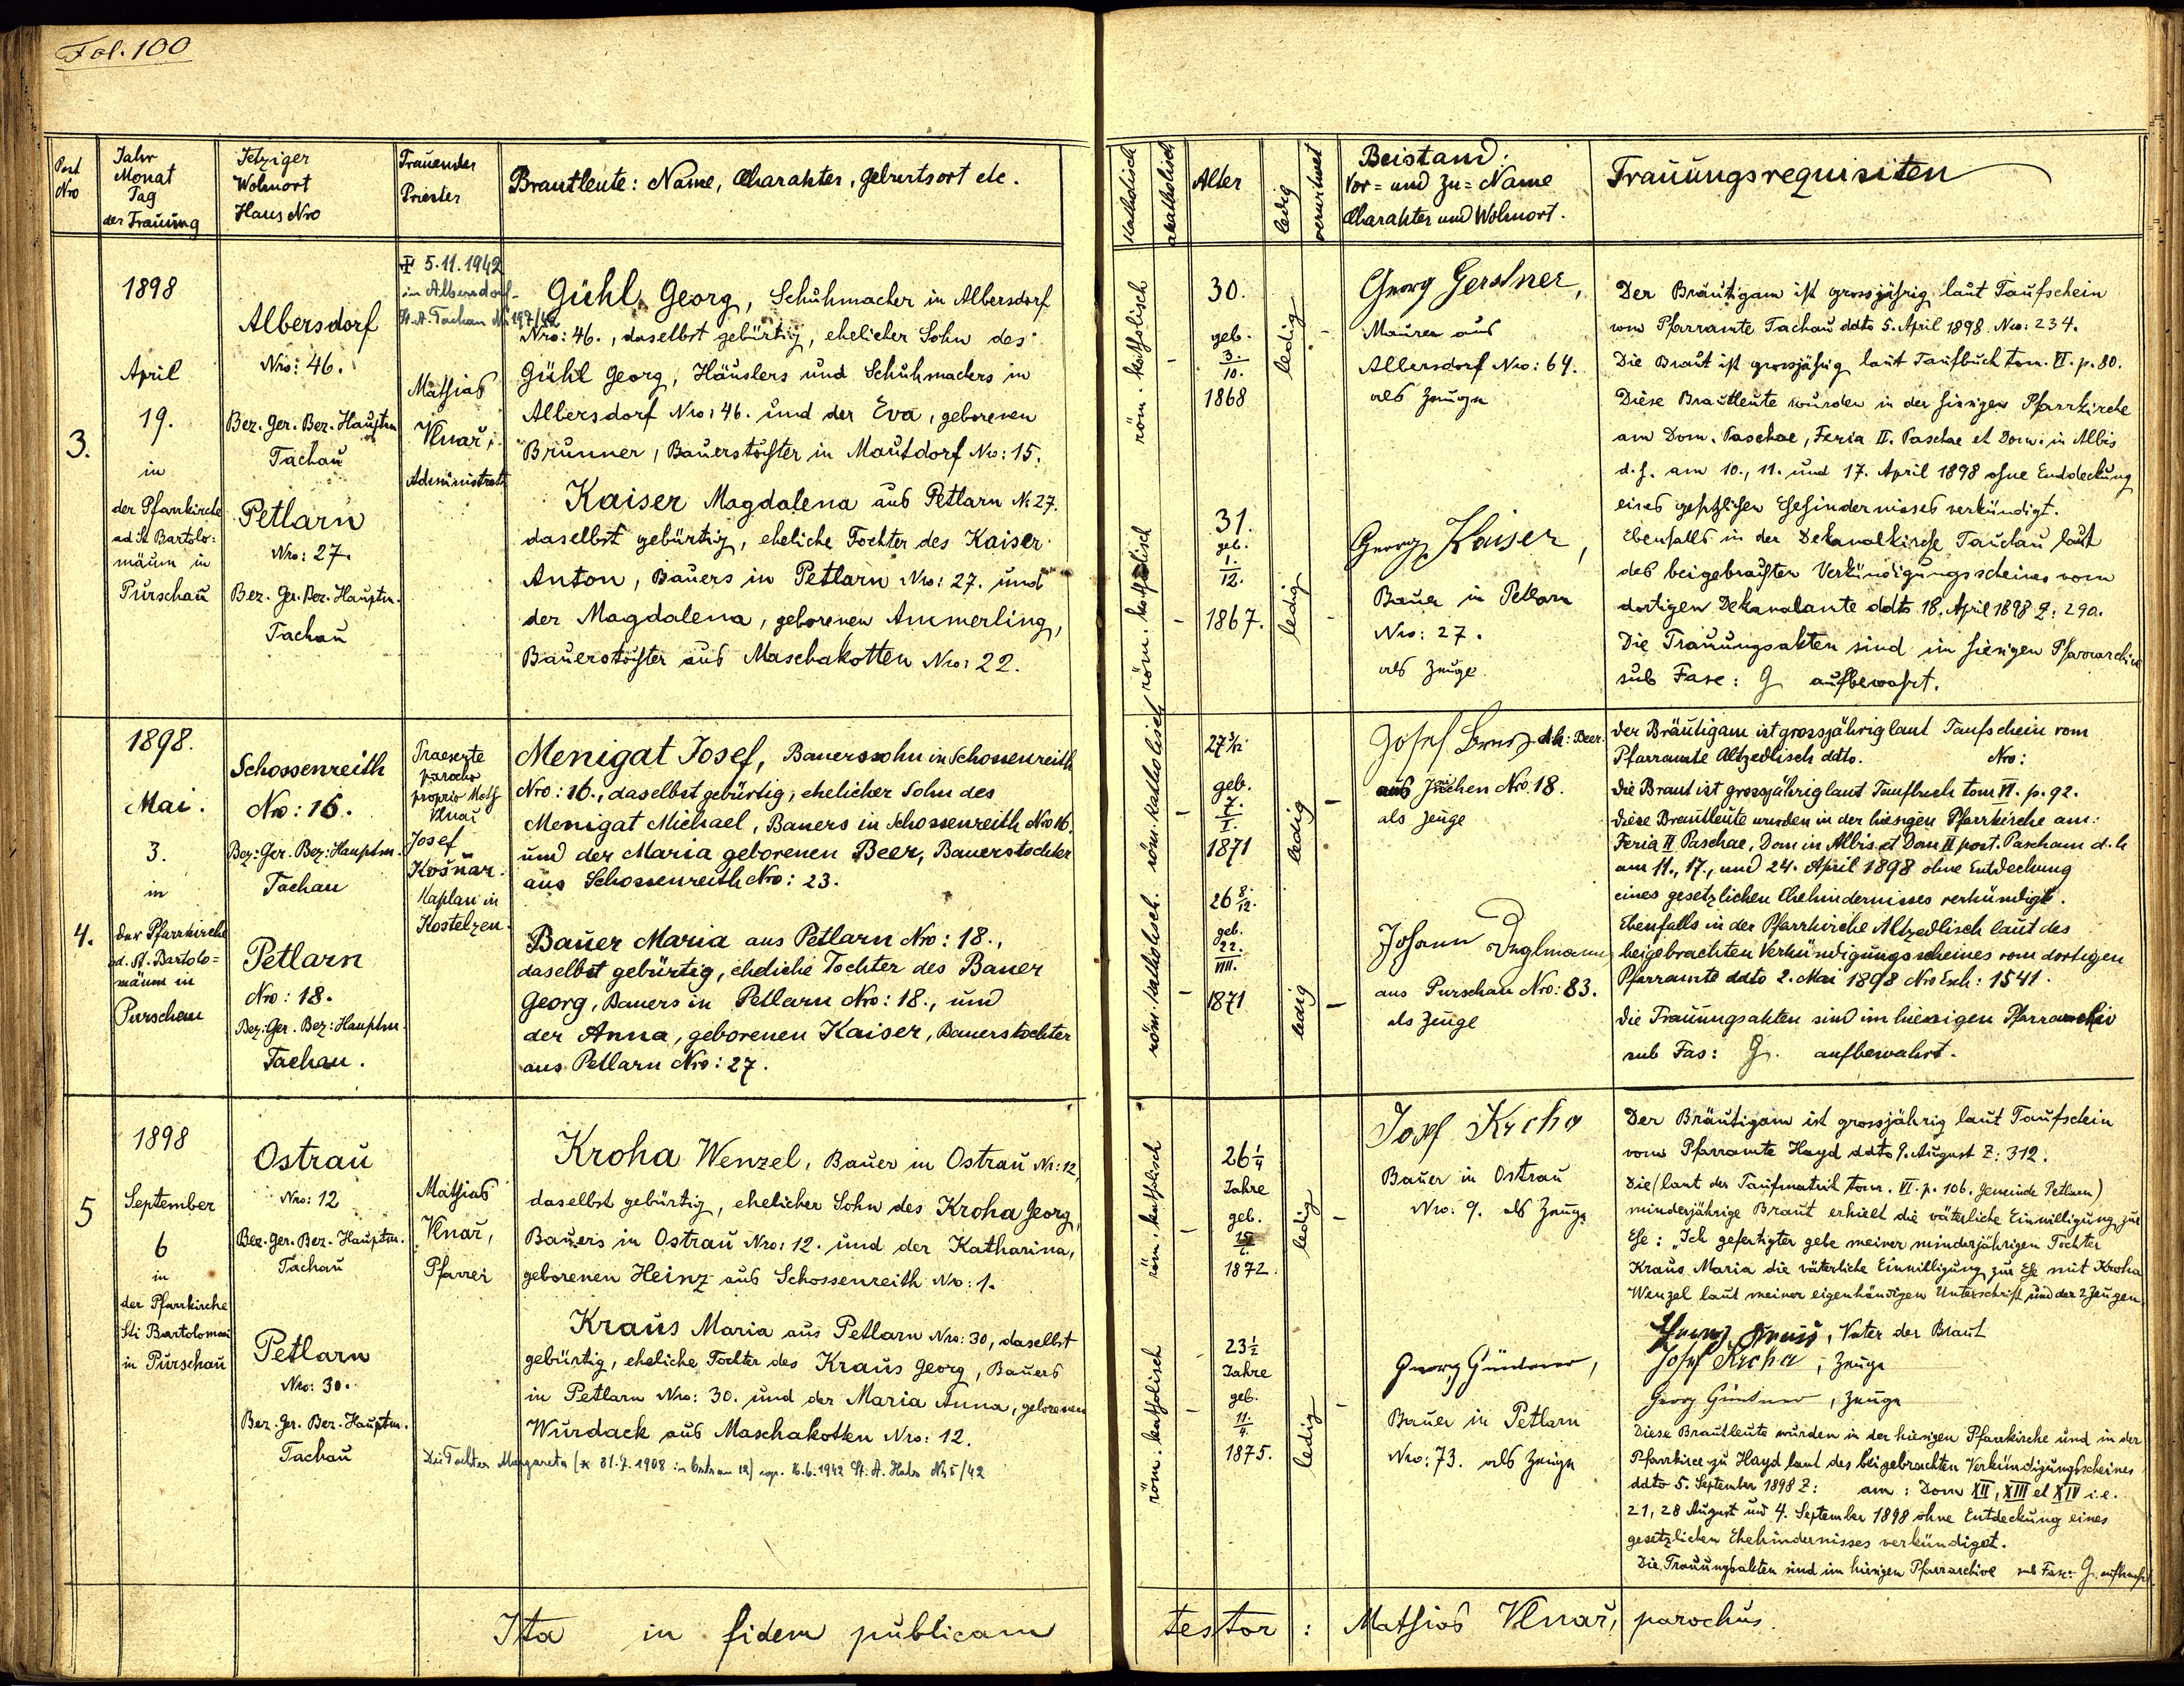 Fol. 100
Post Nro
Jahr Monat Tag der Trauung
Jetziger Wohnort Haus Nro
Trauender Priester
Brautleute: Name, Charakter, Geburtsort etc.
katholisch
akatholisch
Alter
ledig
verwitwet
Beistand: Vor- und Zu-Name Charakter und Wohnort.
Trauungsrequisiten
3.
1898
April
19.
in
der Pfarrkirche
ad St Bartolo-
mäum in
Purschau
Albersdorf
Nro: 46.
Bez. Ger. Bez. Hauptm
Tachau
Petlarn
Nro: 27.
Bez. Ger. Bez. Hauptm.
Tachau
✝ 5.11.1942
in Albersdorf
St. A. Tachau Nr 197/42
Mathias
Klnař,
Administrator
Gühl Georg, Schuhmacher in Albersdorf
Nro: 46., daselbst gebürtig, ehelicher Sohn des
Gühl Georg, Häuslers und Schuhmachers in
Albersdorf Nro: 46. und der Eva, geborenen
Brunner, Bauerstochter in Mautdorf Nro: 15.
Kaiser Magdalena aus Petlarn N: 27.
daselbst gebürtig, eheliche Tochter des Kaiser
Anton, Bauers in Petlarn Nro: 27. und
der Magdalena, geborenen Ammerling,
Bauerstochter aus Maschakotten Nro: 22.
röm. katholisch
-
30.
geb.
3.
10.
1868
ledig
-
Georg Gerstner,
Maurer aus
Albersdorf Nro: 64.
als Zeuge
röm. katholisch
-
31.
geb.
1.
12.
1867.
ledig
-
Georg Kaiser,
Bauer in Petlarn
Nro: 27.
als Zeuge
Der Bräutigam ist grossjährig laut Taufschein
vom Pfarramte Tachau ddto 5. April 1898 Nro: 234.
Die Braut ist grossjährig laut Taufbuch tom. VI. p. 80.
Diese Brautleute wurden in der hiesigen Pfarrkirche
am Dom. Paschae, Feria II. Paschae et Dom. in Albis
d. h. am 10., 11. und 17. April 1898 ohne Entdeckung
eines gesetzlichen Ehehindernisses verkündigt.
Ebenfalls in der Dekanalkirche Tachau laut
des beigebrachten Verkündigungsscheines vom
dortigen Dekanalamte ddto 18. April 1898 Z: 290.
Die Trauungsakten sind im hiesigen Pfarrarchive
sub Fasc: G aufbewahrt.
4.
1898.
Mai.
3.
in
der Pfarrkirche
ad. St. Bartolo=
mäum in
Purschau
Schossenreith
Nro: 16.
Bez: Ger. Bez: Hauptm.
Tachau
Petlarn
Nro: 18.
Bez: Ger. Bez: Hauptm.
Tachau.
parocho
proprio Math
Klnař
Josef
Košnař.
Kaplan in
Kostelzen.
Menigat Josef, Bauerssohn in Schossenreith
Nro: 16., daselbst gebürtig, ehelicher Sohn des
Menigat Michael, Bauers in Schossenreith Nro 16.
und der Maria geborenen Beer, Bauerstochter
aus Schossenreith Nro: 23.
Bauer Maria aus Petlarn Nro: 18.,
daselbst gebürtig, eheliche Tochter des Bauer
Georg, Bauers in Petlarn Nro: 18., und
der Anna, geborenen Kaiser, Bauerstochter
aus Petlarn Nro: 27.
röm. katholisch
-
27 3/12
geb.
7.
I.
1871
ledig
-
Josef d.h: Beer.
aus Nro. 18.
als Zeuge
röm. katholisch.
-
26 8/12.
geb.
22.
VIII.
1871
ledig
-
Johann Inglmann
aus Purschau Nro: 83.
als Zeuge
Der Bräutigam ist grossjährig laut Taufschein vom
Pfarramte Altzedlisch ddto. Nro:
Die Braut ist grossjährig laut Taufbuch tom VI. p. 92.
Diese Brautleute wurden in der hiesigen Pfarrkirche am:
Feria II Paschae, Dom in Albis et Dom II post. Pascham d. h
am 11., 17., und 24. April 1898 ohne Entdeckung
eines gesetzlichen Ehehindernisses verkündigt.
Ebenfalls in der Pfarrkirche Altzedlisch laut des
beigebrachten Verkündigungsscheines vom dortigen
Pfarramte ddto 2. Mai 1898 Nro Exh: 1541.
Die Trauungsakten sind im hiesigen Pfarrarchiv
sub Fas: G. aufbewahrt.
5
1898
September
6
in
der Pfarrkirche
Sti Bartolomaei
in Purschau
Ostrau
Nro: 12
Bez. Ger. Bez. Hauptm.
Tachau
Petlarn
Nro: 30.
Bez. Ger. Bez. Hauptm.
Tachau
Mathias
Klnař,
Pfarrer
Kroha Wenzel, Bauer in Ostrau Nr: 12,
daselbst gebürtig, ehelicher Sohn des Kroha Georg,
Bauers in Ostrau Nro: 12. und der Katharina,
geborenen Heinz aus Schossenreith Nro: 1.
Kraus Maria aus Petlarn Nro: 30, daselbst
gebürtig, eheliche Tochter des Kraus Georg, Bauers
in Petlarn Nro: 30. und der Maria Anna, geborenen
Wurdack aus Maschakotten Nro: 12.
Die Tochter Margareta (* 31.7.1908 in Ostrau 12) 16.6.1942 St. A. Nr 5/42
röm. katholisch
-
26 1/4
Jahre
geb.
15
6.
1872.
ledig
-
Josef Krcha
Bauer in Ostrau
Nro: 9. als Zeuge
röm. katholisch
-
23 1/2
Jahre
geb.
11.
4.
1875.
ledig
-
Georg Güntner,
Bauer in Petlarn
Nro: 73. als Zeuge
Der Bräutigam ist grossjährig laut Taufschein
vom Pfarramte Hayd ddto 9. August Z: 312.
Die (laut der Taufmatrik tom. VI. p. 106. Gemeinde Petlarn)
minderjährige Braut erhielt die väterliche Einwilligung zur
Ehe: „Ich gefertigter gebe meiner minderjährigen Tochter
Kraus Maria die väterliche Einwilligung zur Ehe mit Kroha
Wenzel laut meiner eigenhändigen Unterschrift und der 2 Zeugen.
Georg Kraus, Vater der Braut
Josef Krcha, Zeuge
Georg Güntner, Zeuge
Diese Brautleute wurden in der hiesigen Pfarrkirche und in der
Pfarrkirce zu Hayd laut des beigebrachten Verkündigungsscheines
ddto 5. September 1898 Z: am: Dom XII, XIII et XIV i.e.
21, 28 August und 4. September 1898 ohne Entdeckung eines
gesetzlichen Ehehindernisses verkündiget.
Die Trauungsakten sind im hiesigen Pfarrarchive sub Fasc: G. aufbewahrt
Ita in fidem publicam testor: Mathias Klnař, parochus.